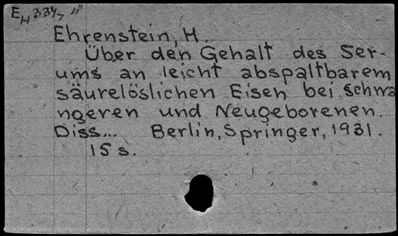 Ehrenstein, H.
Über den Gehalt des Ser-
ums an leicht abspaltbarem
säurelöslichen Eisen bei schwa
ngeren und Neugeborenen.
Diss... Berlin, Springer, 1931.
15 s.